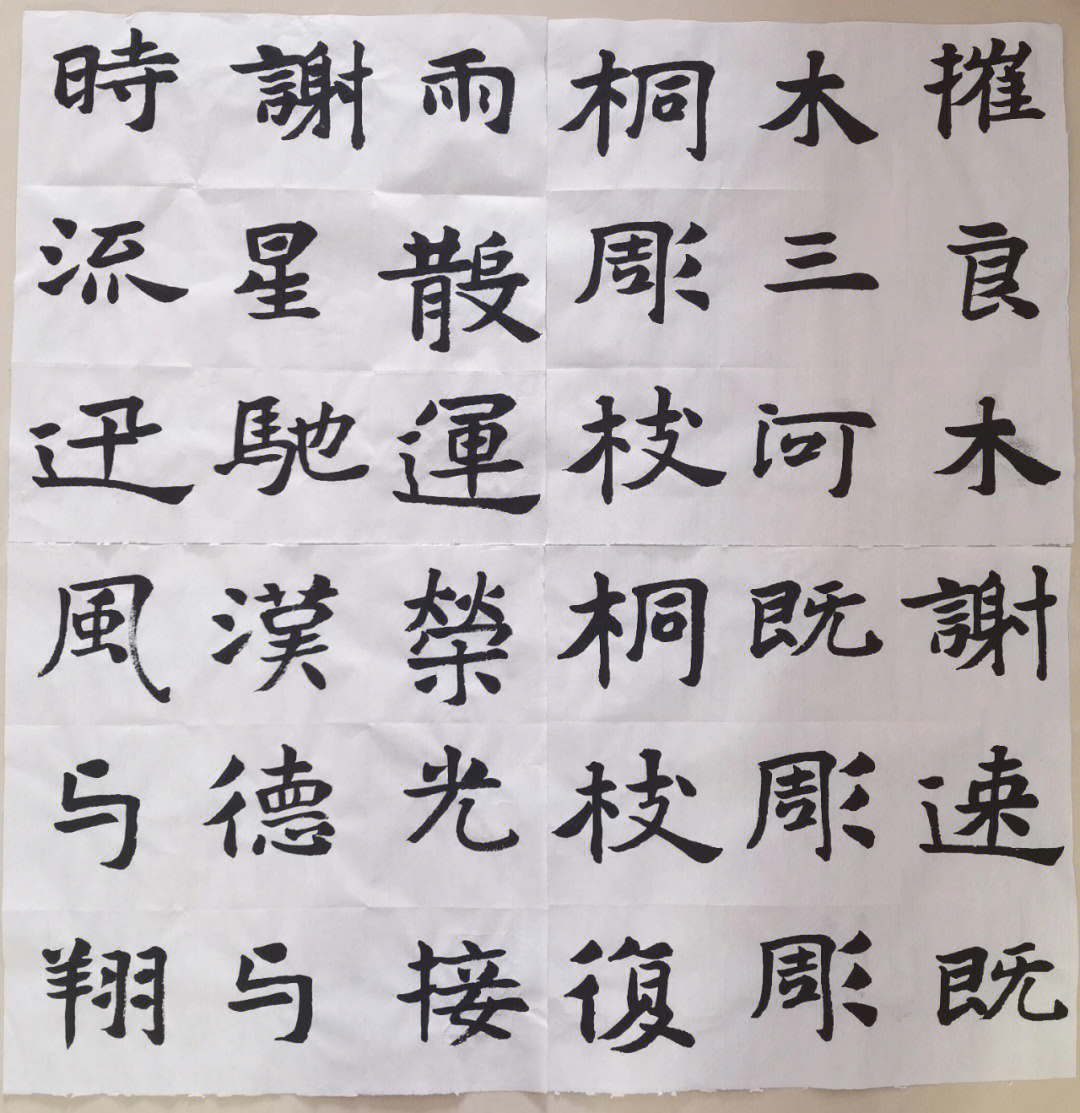 摧良木謝速既
木三河既彫彫
桐彫枝桐枝復
雨散運榮光接
謝星馳漢德与
時流迅風与翔